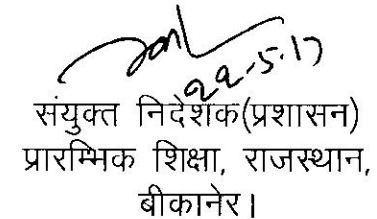 22-5-17
संयुक्त निदेशक(प्रशासन)
प्रारम्भिक शिक्षा, राजस्थान,
बीकानेर।